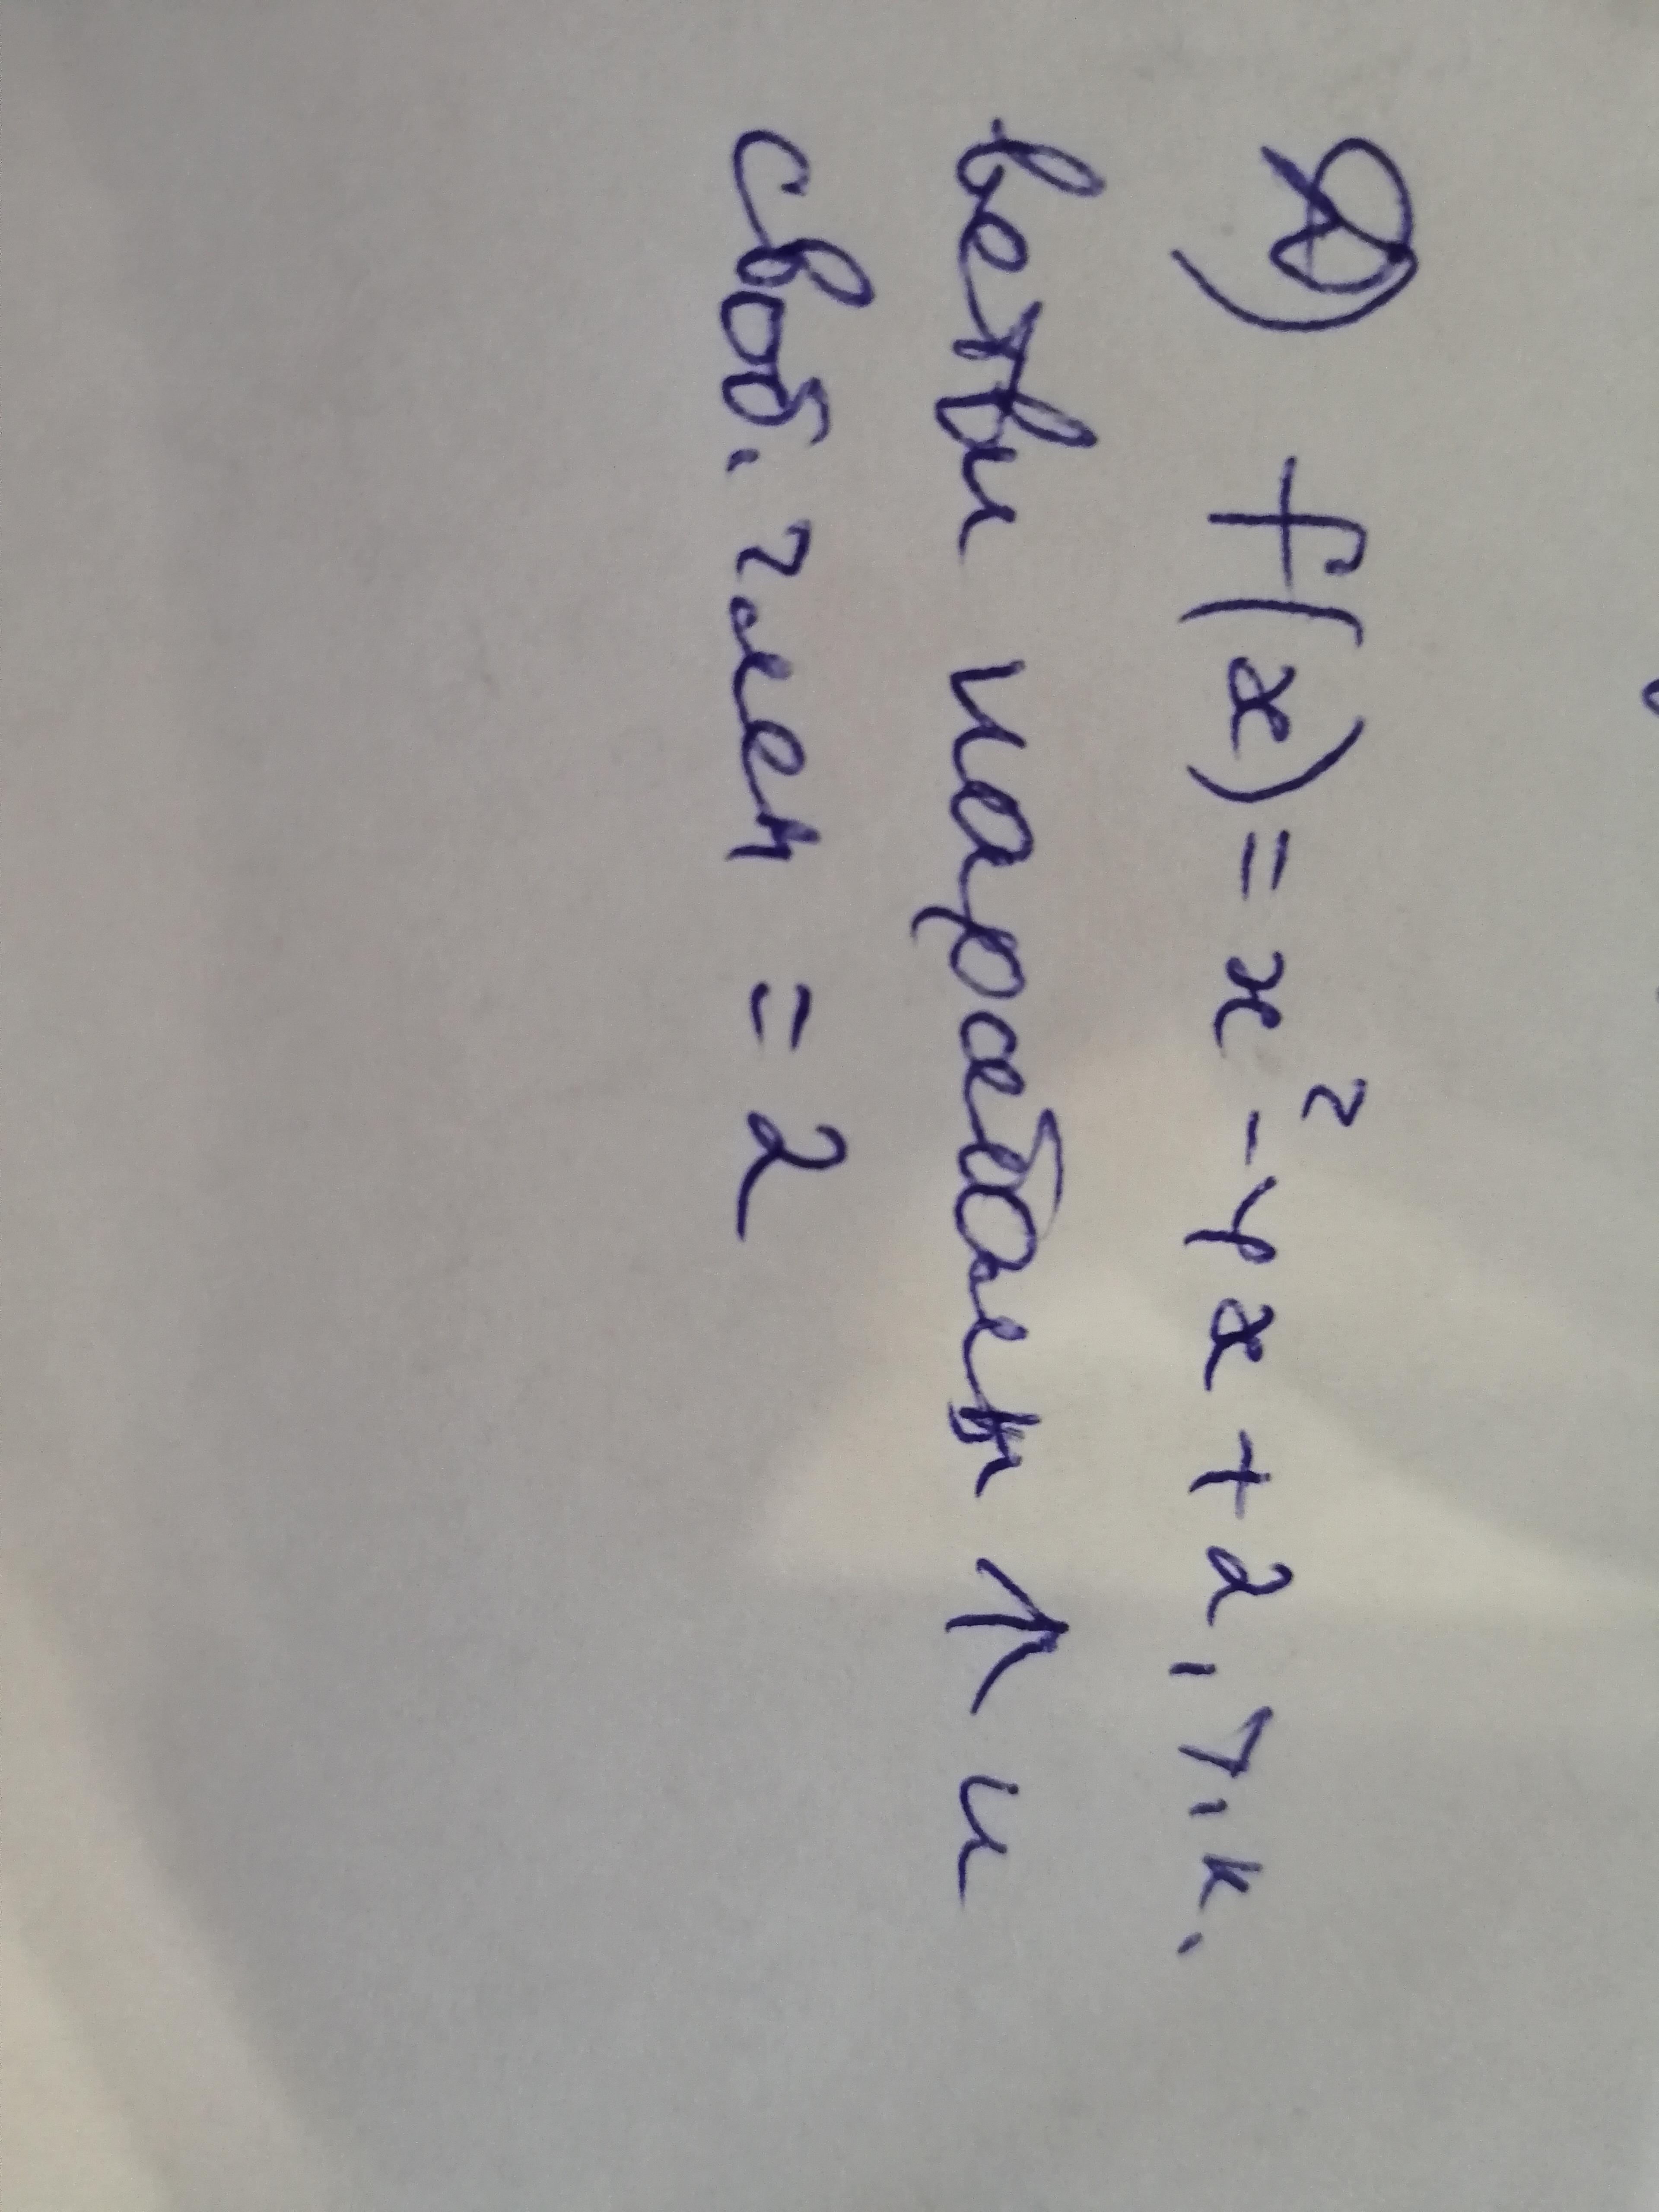 f(x) = x² - 4x + 2, т.к.
ветви параболы ↑ и
своб. член = 2